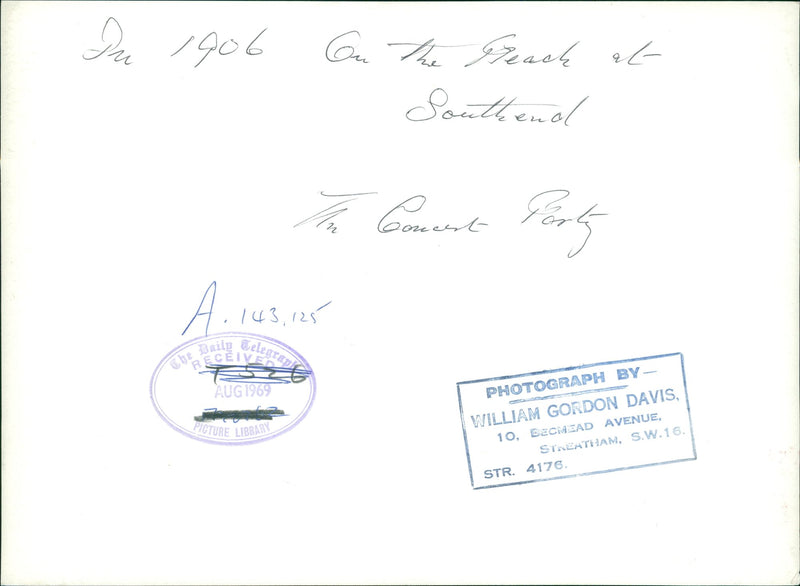 In 1906 On the Beach at
Southend
The Concert Party
A. 143,125
The Daily Telegraph
RECEIVED
T 526
AUG 1969
PICTURE LIBRARY
PHOTOGRAPH BY—
WILLIAM GORDON DAVIS,
10, BECMEAD AVENUE,
STREATHAM, S.W.16.
STR. 4176.